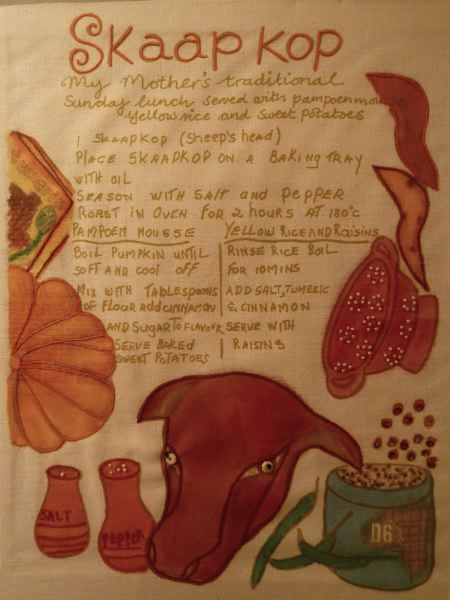 Skaap kop
My Mother's traditional
Sunday lunch served with pampoenmousse
Yellow rice and sweet potatoes
1 SKAAPKOP (Sheep's head)
PLACE SKAAPKOP ON A BAKING TRAY
WITH OIL
SEASON WITH SALT and PEPPER
ROAST IN OVEN FOR 2 HOURS AT 180°C
PAMPOEM MOUSSE
BOIL PUMPKIN UNTIL
SOFT AND COOL OFF
MIX WITH TABLESPOONS
OF FLOUR ADD CINNAMON
AND SUGAR TO FLAVOUR
SERVE BAKED
SWEET POTATOES
YELLOW RICE AND RAISINS
RINSE RICE BOIL
FOR 10 MINS
ADD SALT, TUMERIC
& CINNAMON
SERVE WITH
RAISINS
SALT
PEPPER
D6